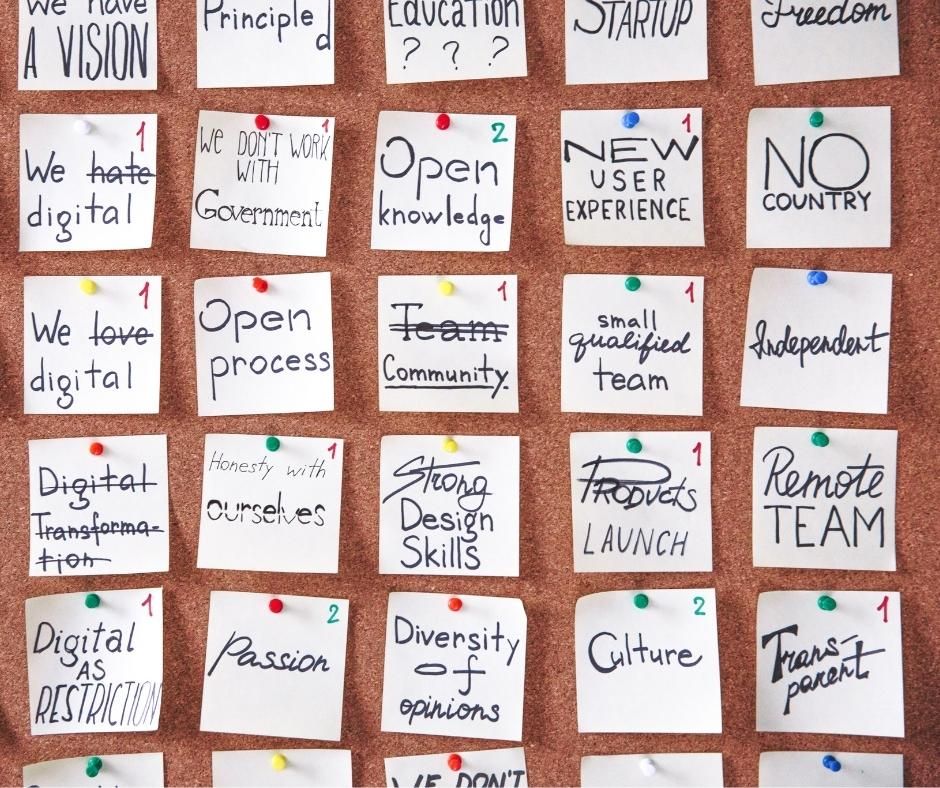 We have
A VISION
Principle
d
Education
? ? ?
STARTUP
Freedom
1
We hate
digital
1
WE DON'T WORK
WITH
Government
2
Open
knowledge
1
NEW
USER
EXPERIENCE
NO
COUNTRY
1
We love
digital
Open
process
1
Team
Community.
1
small
qualified
team
Independent
Digital
Transforma-
tion
1
Honesty with
ourselves
Strong
Design
Skills
1
PRODUCTS
LAUNCH
Remote
TEAM
1
Digital
AS
RESTRICTION
2
Passion
Diversity
of
opinions
2
Culture
1
Trans-
parent
WE DON'T